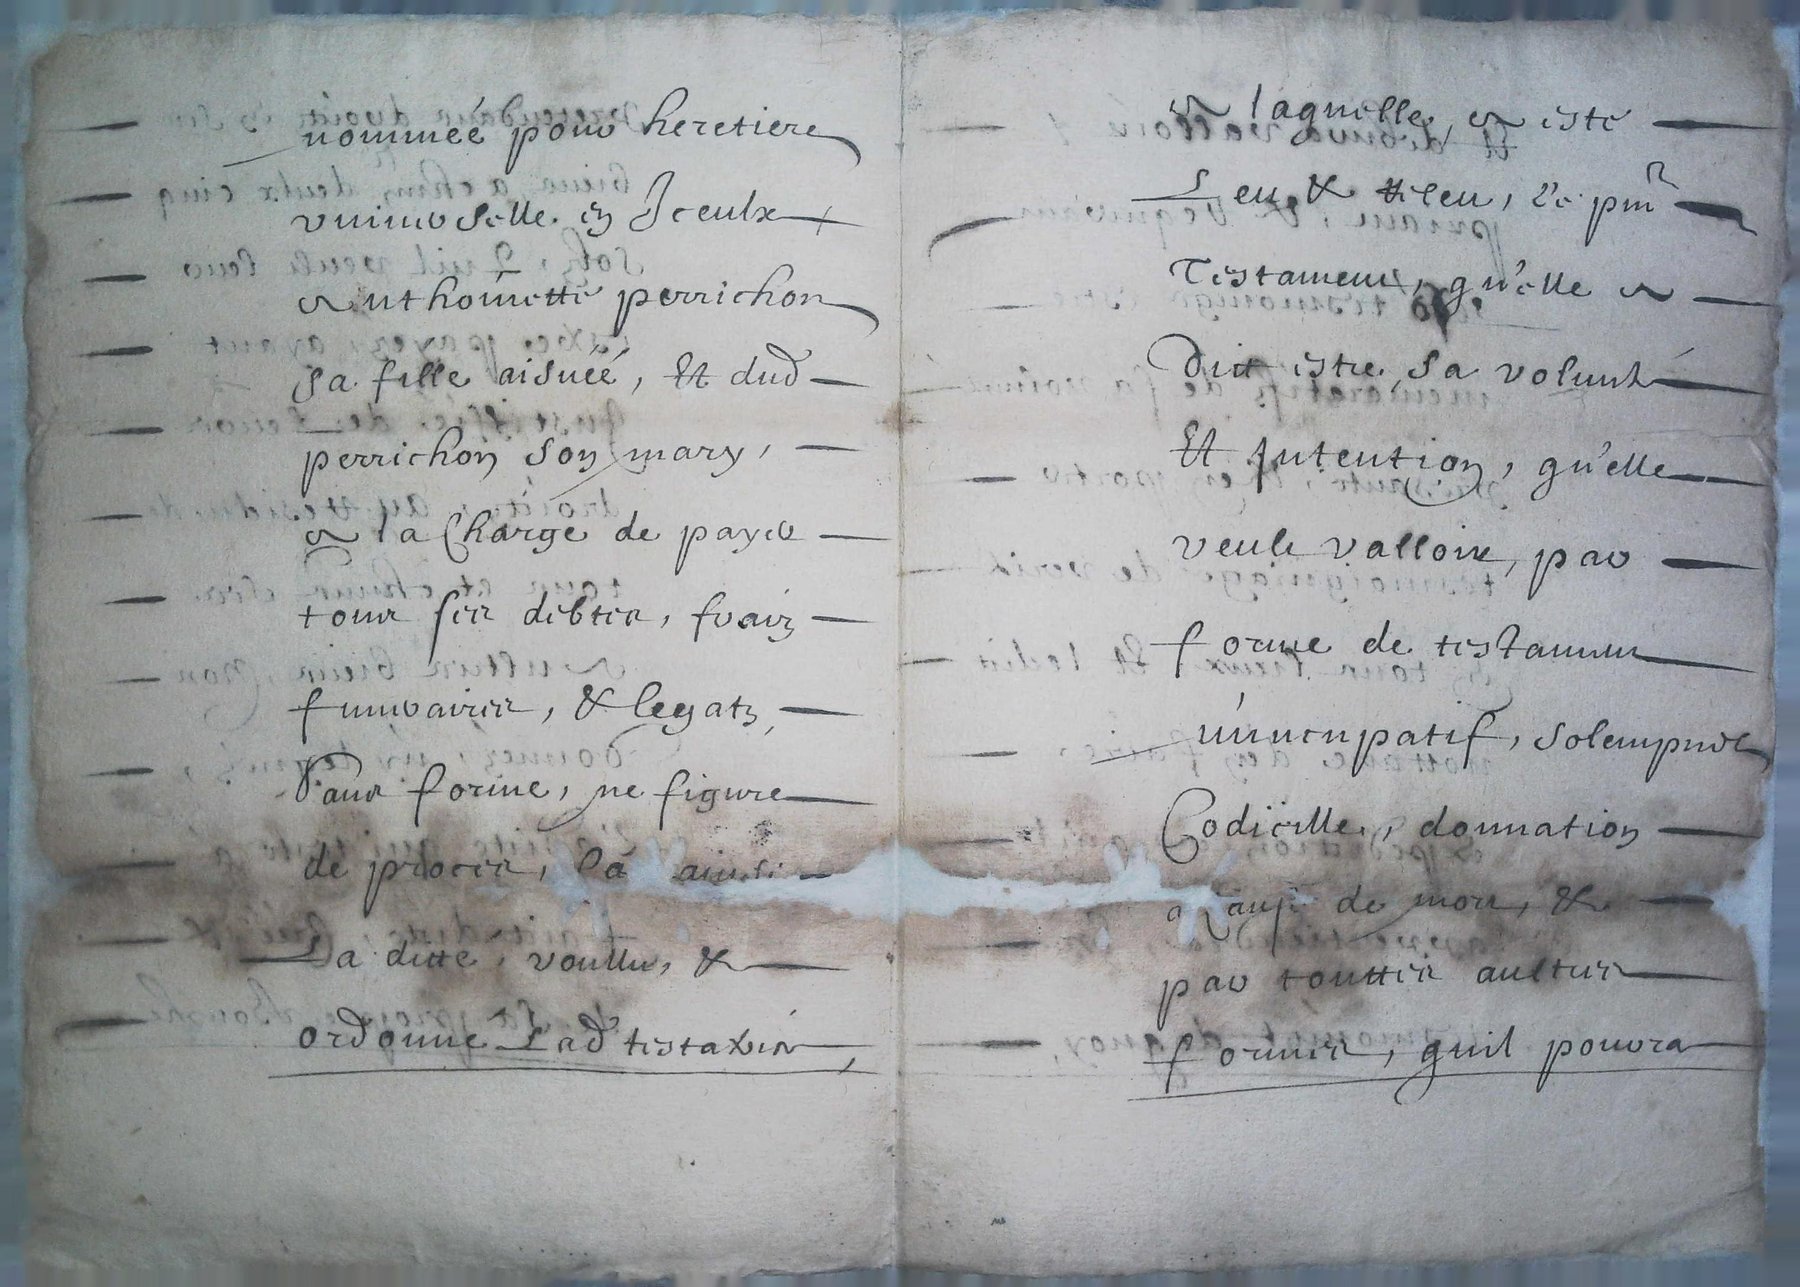 nommeé pour heretiere
universelle en Iceulx
Anthoinette perrichon
sa fille aisnéé, Et dud
perrichon son mary,
A la Charge de payer
tous ses debtes, fraiz
funeraires, & legatz
Sans forme, ne figure
de proces, Ca ainsi
La ditte, voullu, &
ordonne Lad testatrix,
A laquelle, A esté
Leu & releu, Ce pnt
Testament, qu'elle A
Dit estre sa volunté
Et Intention, qu'elle
veult valloir, par
forme de testament
nuncupatif, solempnel
Codicille, donnation
a Cause de mort, &
par touttes aultres
formes, quil pourra